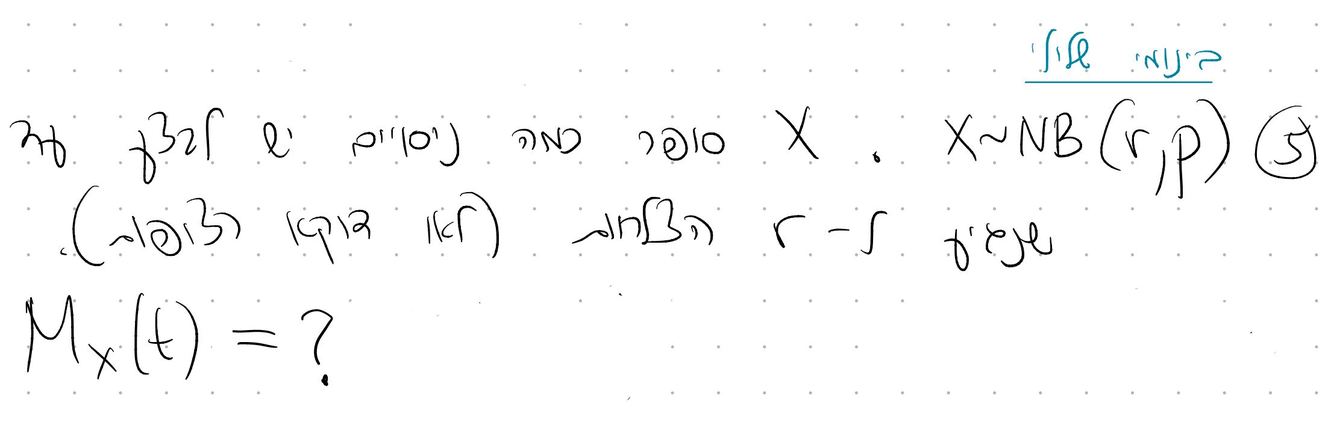 בינומי שלילי
⑤ X~NB(r,p). X סופר כמה ניסויים יש לבצע עד
שנגיע ל-r הצלחות (לאו דוקא רצופות).
Mₓ(t) = ?